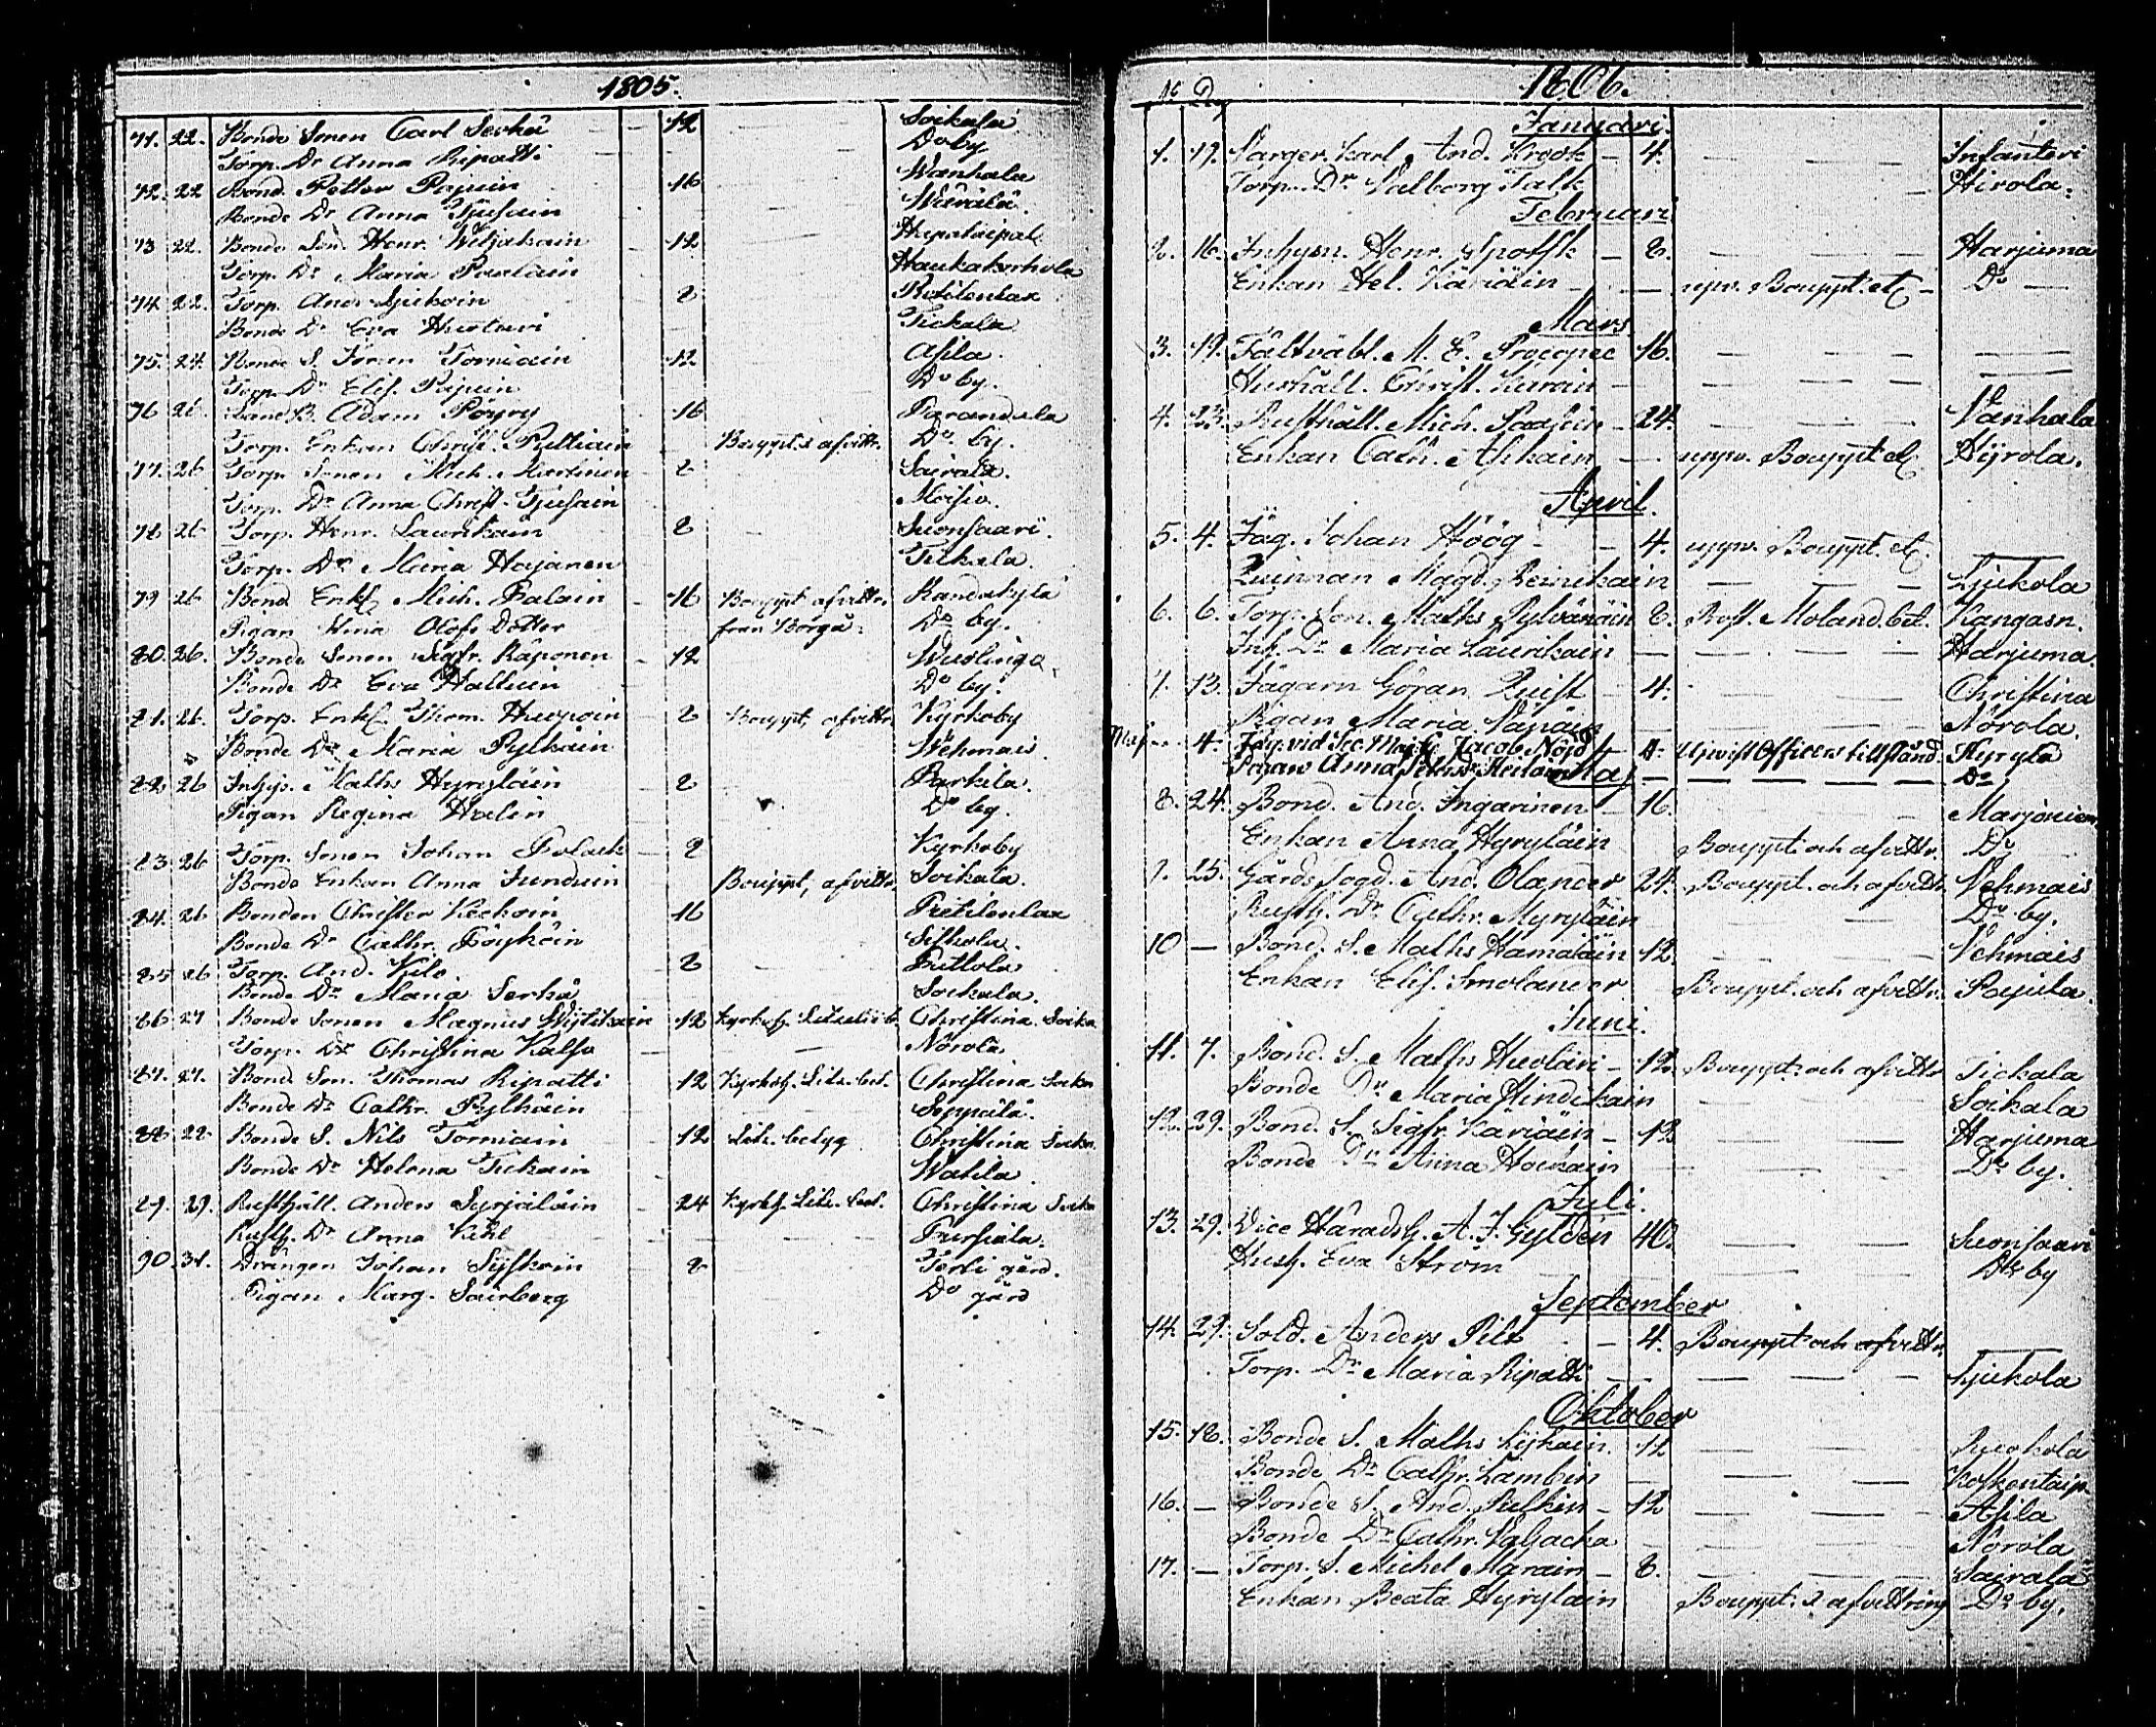 1805.
71. 22. Bonde Sonen Carl Serkä 12 Soikala
Torp. Dr Anna Ripatti Do by
72. 22 Bond. Petter Papuin 16 Wanhala
Bonde Dr Anna Tjusain Wuräla.
73 22. Bonde Son. Henr. Wiljakain 12
Torp. Dr Maria Paulain Haukakorhola
74 22. Torp. Anders 8
Bonde Dr Eva Huolari Tickala
75. 24. Bonde S. Jöran Torniain 12 Asila.
Torp. Dr Elis. Papuin Do by.
76 26. Adam Pöyry 16
Torp. Enkan Christ. Pulliain Bouppt. & afvittr. Do. by.
77. 26 Torp. Sonen Mich. Martinen 8 Sairala.
Torp. Dr Anna Christ. Tjusain Moisio.
78 26 Torp. Henr. Laurikain 8 Suonsaari.
Torp. Dr Maria Hajanen Tikkala.
79 26 Bond. Enkl. Mich. Palain 16 Bouppt. afvittr. Kandakylä
Pigan Stina Olofs Dotter från Borgå. Do by.
80. 26. Bonde Sonen Sigfr. Käponen 12
Bonde Dr Eva Halluin Do by.
81. 26. Torp. Enkl. Thom. Huopoin 8 Bouppt, afvittr. Kyrkoby
Bonde Dr Maria Pylkäin Wehmais.
82 26 Inhys. Maths Hyryläin 8 Parkila.
Pigan Regina Halin Do by.
83 26 Torp. Sonen Johan Polack 8 Kyrkoby
Bonde Enkan Anna Junduin Bouppt, afvittr. Soikala.
84. 26 Bonden Christer Keckoin 16
Bonde Dr Cathr. Pöyhöin
85 26 Torp. And. Kilo. 8 Puttola
Bonde Dr Maria Serkä Soikala.
86 27 Bonde Sonen Magnus Wijtikain 12 Christina Sockn
Torp. Dr Christina Kalso Nôrola.
87. 27. Bonde Son. Thomas Ripatti 12 Kyrkoh. Litt. bet. Christina Sockn
Bonde Dr Cathr. Pylkäin Seppälä.
88 28 Bonde S. Nils Torniain 12 Litt. betyg Christina Sockn.
Bonde Dr Helena Tickain Watila.
89. 29. Rusthåll. Anders Syrjäläin 24 Kyrkoh. Litt. bet. Christina Sockn
Rusth. Dr Anna Kihl Pursiala.
90. 31. Drängen Johan Sijskoin 8 gård.
Pigan Marg. Sairberg Do gård
No D. 1806.
Januari.
1. 19. Sarger. Karl And. Krook 4. Infanteri
Torp. Dr Valborg Falk Hirola.
Februari
2. 16. Inhysn. Henr. Spoffk 8. Harjuma
Enkan Hel. Käriäin upv. Bouppt. etc Do
Mars.
3. 19. Fältväbl. M. E. Procopee 16.
Hushåll. Christ. Kurain
4. 23. Rusthåll. Mich. Paasoin 24. Vanhala
Enkan Cath. Asikain uppv. Bouppt etc Hyrola.
April.
5. 4. Jäg. Johan Höög 4. uppv. Bouppt. etc.
Quinnan Magd. Reinikain Ljukola
6. 6. Torp. Son. Maths Pylvänäin 8. Past. Moland. bet. Kangasn.
Inh. Dr Maria Laurikain Harjuma.
7. 13. Jägarn Göran Quist 4. Christina
Pigan Maria Vänäin Nôrola.
Maj 4. Jäg. vid Sec. Maj. C. Jacob Nöjd 4. Upvist Officers tillstånd. Hyryla
Pigan Anna Petersdr Heiläin Do
Maj
8. 24. Bond. And. Ingarinen 16. Marjoniem
Enkan Anna Hyryläin Bouppt. och afvittr. Do
9. 25. Gårds fogd. And. Olander 24. Bouppt. och afvittr. Vehmais
Rusth. Dr Cathr. Myryläin Do by.
10 — Bond. S. Maths Hamaläin 12. Vehmais
Enkan Elis. Smolander Bouppt. och afvittr. Pajula.
Juni.
11. 7. Bond. S. Maths Huolari 12. Bouppt. och afvittr Tickala
Bonde Dr Maria Hindikain Soikala
12. 29. Bond. S. Sigfr. Käriäin 12 Harjuma
Bonde Dr Anna Hockain Do by.
Juli.
13. 29. Vice Häradsh. A. J. Gyldén 40. Suonsaari
Hush. Eva Ström Do by
September
14. 29. Sold. Anders Pilt 4. Bouppt och afvittr.
Torp. Dr Maria Ripatti Ljukola
Oktober
15. 18. Bonde S. Maths Lyhain. 12
Bonde Dr Cathr. Lambin
16. — Bonde S. And. Puskin 12 Asila
Bonde Dr Cathr. Valjacka Nôrola
17. — Torp. S. Michel Marain 8. Sairala
Enkan Beata Hyryläin Bouppt. & afvittring Do by.